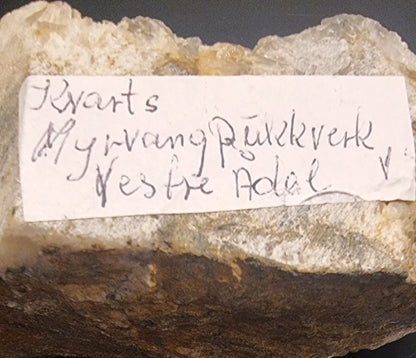 Kvarts
Myrvang Pükkverk
Vestre Adal